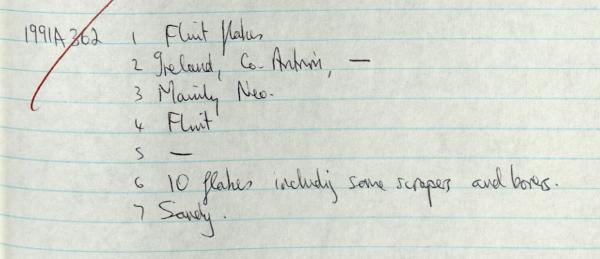 1991A 362 1 Flint flakes
2 Ireland, Co. Antrim, —
3 Mainly Neo.
4 Flint
5 —
6 10 flakes including some scrapers and borers.
7 Sandy.